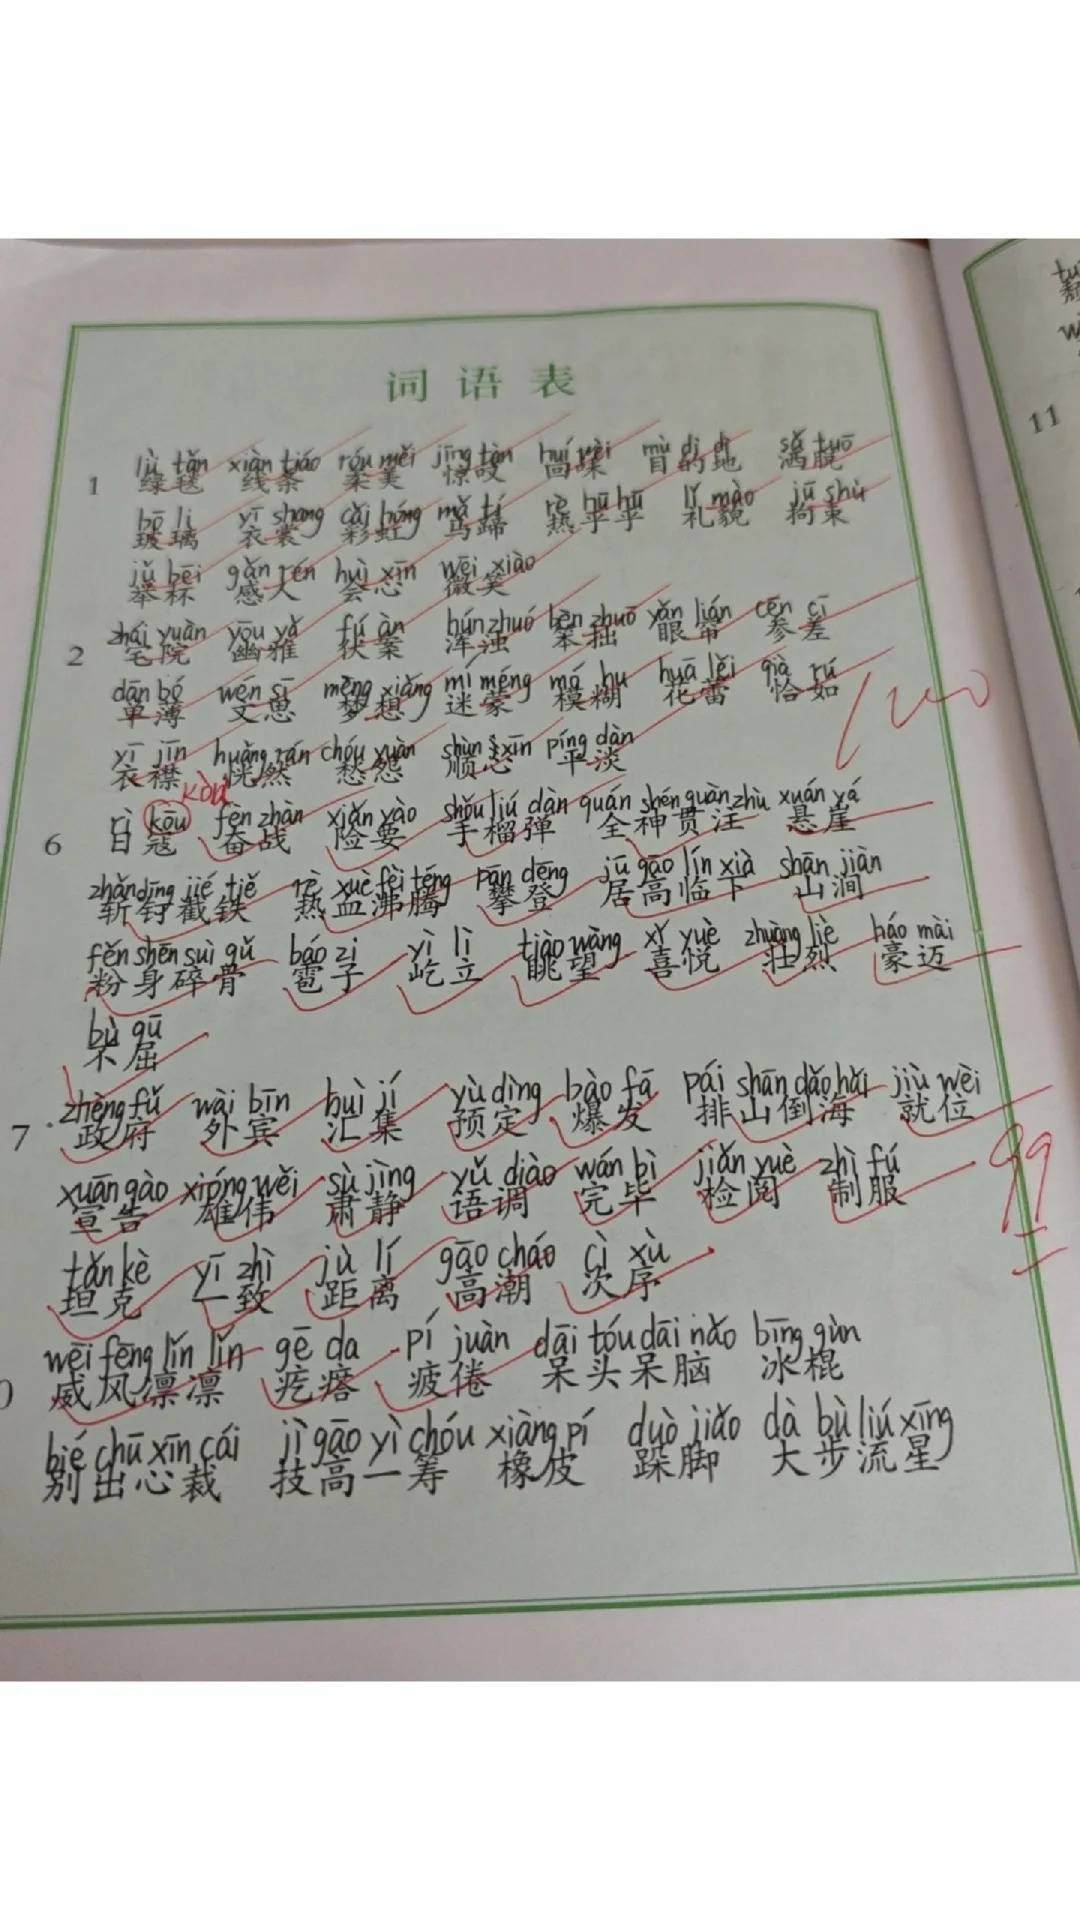 词语表
lǜ tǎn xiàn tiáo róu měi jīng tàn huí wèi mù dì dì sǎ tuō
1 绿毯 线条 柔美 惊叹 回味 目的地 洒脱
bō li yī shang cǎi hóng mǎ tí rè hū hū lǐ mào jū shù
玻璃 衣裳 彩虹 马蹄 热乎乎 礼貌 拘束
jǔ bēi gǎn rén huì xīn wēi xiào
举杯 感人 会心 微笑
zhái yuàn yōu yǎ fú àn hún zhuó bèn zhuō yǎn lián cēn cī
2 宅院 幽雅 伏案 浑浊 笨拙 眼帘 参差
dān bó wén sī mèng xiǎng mí méng má hu huā lěi qià rú
单薄 文思 梦想 迷蒙 模糊 花蕾 恰如
yī jīn huǎng rán chóu yuàn shùn xīn píng dàn
衣襟 恍然 愁怨 顺心 平淡
kòu
rì kōu fèn zhàn xiǎn yào shǒu liú dàn quán shén guàn zhù xuán yá
6 日寇 奋战 险要 手榴弹 全神贯注 悬崖
zhǎn dīng jié tiě rè xuè fèi téng pān dēng jū gāo lín xià shān jiàn
斩钉截铁 热血沸腾 攀登 居高临下 山涧
fěn shēn suì gǔ báo zi yì lì tiào wàng xǐ yuè zhuàng liè háo mài
粉身碎骨 雹子 屹立 眺望 喜悦 壮烈 豪迈
bù qū
不屈
zhèng fǔ wài bīn huì jí yù dìng bào fā pái shān dǎo hǎi jiù wèi
7 政府 外宾 汇集 预定 爆发 排山倒海 就位
xuān gào xióng wěi sù jìng yǔ diào wán bì jiǎn yuè zhì fú
宣告 雄伟 肃静 语调 完毕 检阅 制服
99
tǎn kè yī zhì jù lí gāo cháo cì xù
坦克 一致 距离 高潮 次序
wēi fēng lǐn lǐn gē da pí juàn dāi tóu dāi nǎo bīng gùn
威风凛凛 疙瘩 疲倦 呆头呆脑 冰棍
bié chū xīn cái jì gāo yì chóu xiàng pí duò jiǎo dà bù liú xīng
别出心裁 技高一筹 橡皮 跺脚 大步流星
11